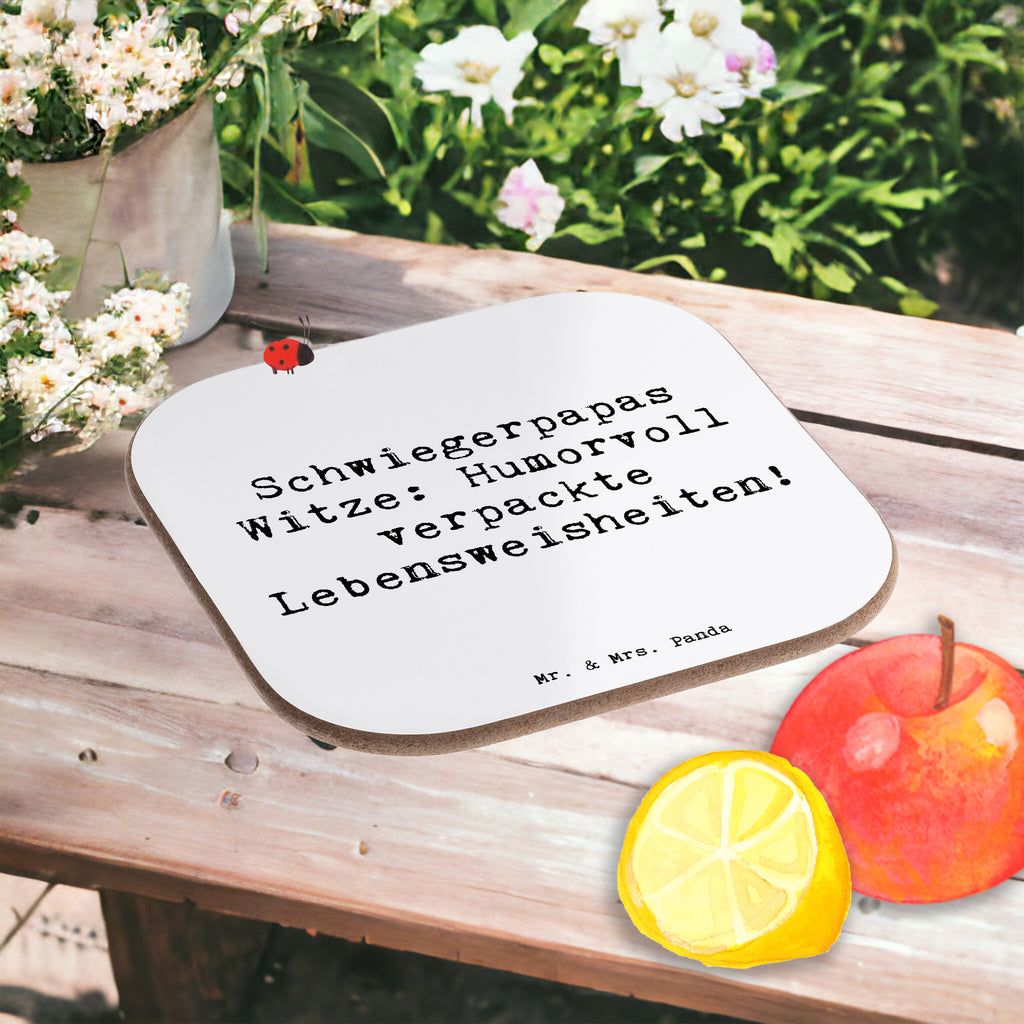 Schwiegerpapas
Witze: Humorvoll
verpackte
Lebensweisheiten!
Mr. & Mrs. Panda